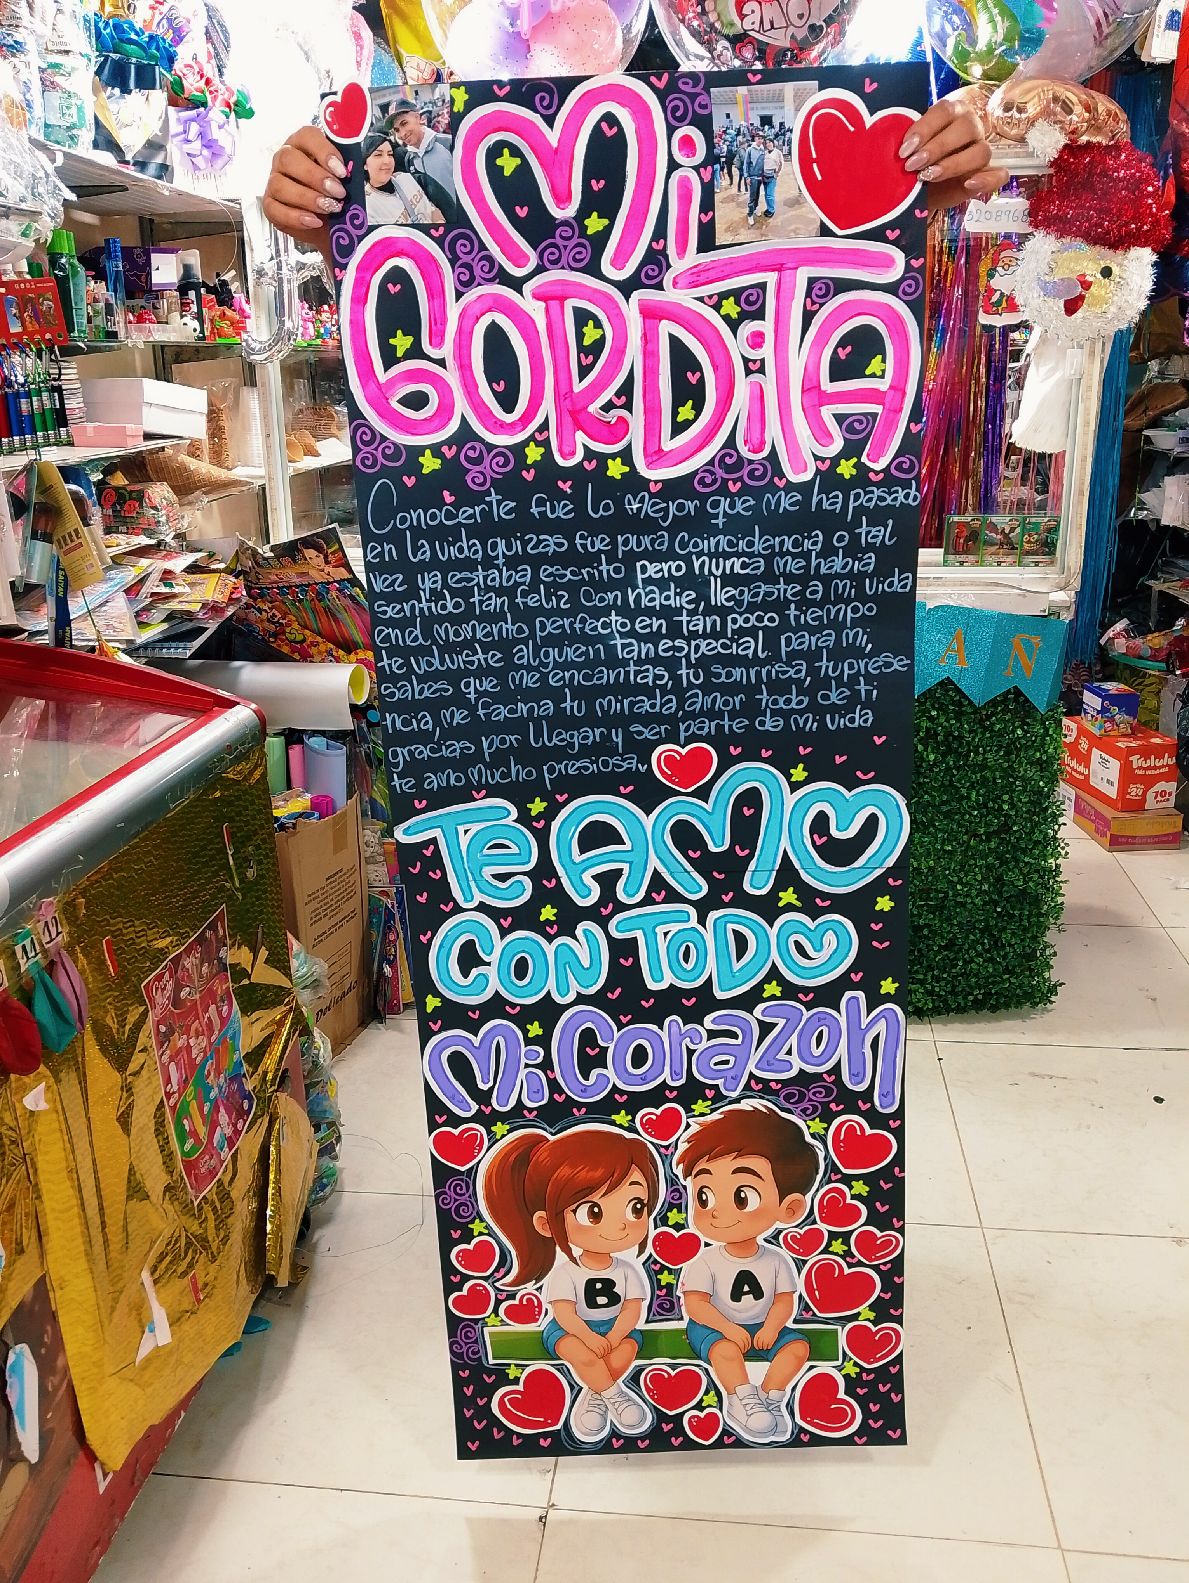 amo!
Mi
GORDiTA
Conocerte fue lo Mejor que me ha pasado
en la vida quizas fue pura coincidencia o tal
vez ya estaba escrito pero nunca me habia
sentido tan feliz con nadie, llegaste a mi vida
en el momento perfecto en tan poco tiempo
te volviste alguien tan especial para mi,
sabes que me encantas, tu sonrrisa, tu prese
ncia, me facina tu mirada, amor todo de ti
gracias por llegar y ser parte de mi vida
te amo mucho presiosa.
Te AMO
CON TODO
Mi Corazon
B A
A Ñ
Trululu
70g
11
12